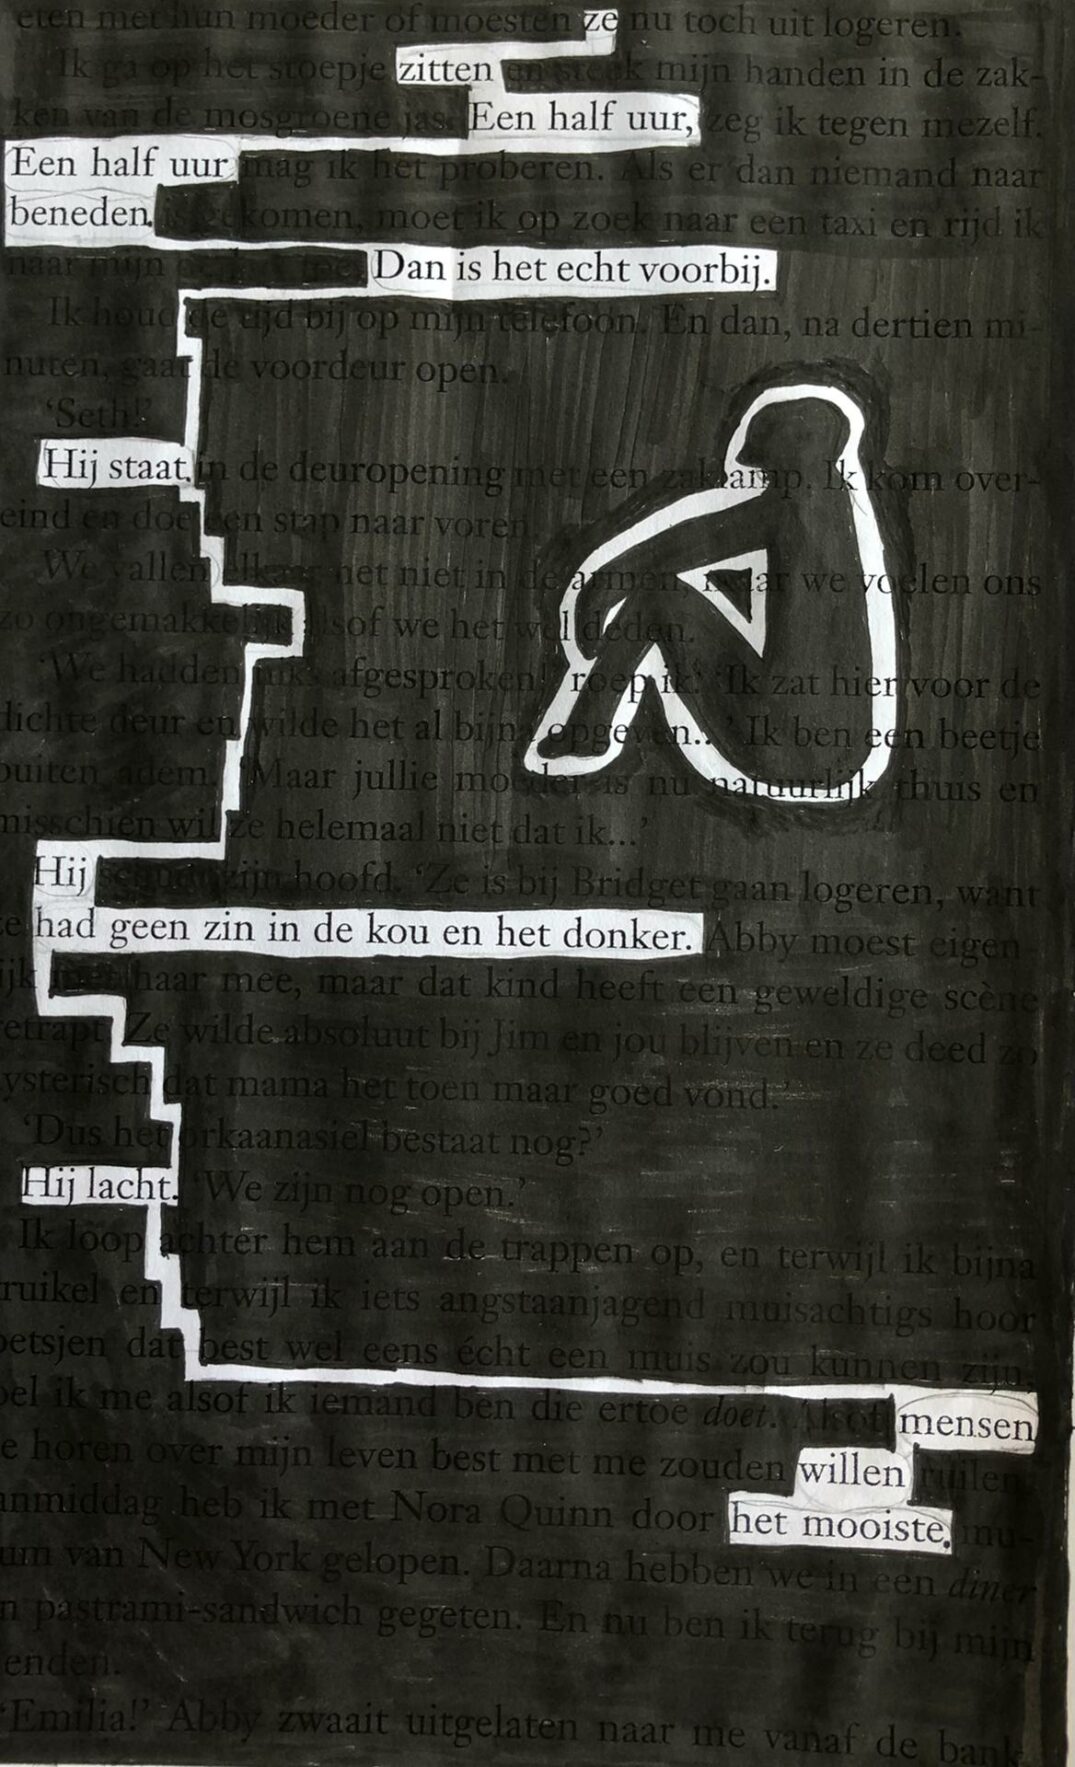 eten met hun moeder of moesten ze nu toch uit logeren.
Ik ga op het stoepje zitten en steek mijn handen in de zak-
ken van de mosgroene jas. Een half uur, zeg ik tegen mezelf.
Een half uur mag ik het proberen. Als er dan niemand naar
beneden. is gekomen, moet ik op zoek naar een taxi en rijd ik
naar mijn Dan is het echt voorbij.
Ik houd de tijd bij op mijn telefoon. En dan, na dertien mi-
nuten, gaat de voordeur open.
‘Seth!’
Hij staat. in de deuropening met een zaklamp. Ik kom over-
eind en doe een stap naar voren.
We vallen elkaar net niet in de armen, maar we voelen ons
zo ongemakkelijk alsof we het wel deden.
‘We hadden niks afgesproken!’ roep ik. ‘Ik zat hier voor de
dichte deur en wilde het al bijna opgeven...’ Ik ben een beetje
buiten adem. ‘Maar jullie moeder is nu natuurlijk thuis en
misschien wil ze helemaal niet dat ik...’
Hij schudt zijn hoofd. ‘Ze is bij Bridget gaan logeren, want
ze had geen zin in de kou en het donker. Abby moest eigen
lijk met haar mee, maar dat kind heeft een geweldige scène
getrapt. Ze wilde absoluut bij Jim en jou blijven en ze deed zo
ysterisch dat mama het toen maar goed vond.’
‘Dus het orkaanasiel bestaat nog?’
Hij lacht. ‘We zijn nog open.’
Ik loop achter hem aan de trappen op, en terwijl ik bijna
ruikel en terwijl ik iets angstaanjagend muisachtigs hoor
oetsjen dat best wel eens écht een muis zou kunnen zijn,
oel ik me alsof ik iemand ben die ertoe doet. Alsof mensen
e horen over mijn leven best met me zouden willen ruilen.
anmiddag heb ik met Nora Quinn door het mooiste. mu-
um van New York gelopen. Daarna hebben we in een diner
n pastrami-sandwich gegeten. En nu ben ik terug bij mijn
enden.
‘Emilia!’ Abby zwaait uitgelaten naar me vanaf de bank